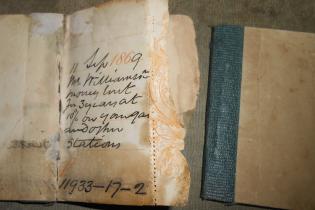 Sep 1869
Mr Williamson
money lent
for 3 years at
10% on yougar
and other
Stations
£1933-17-2